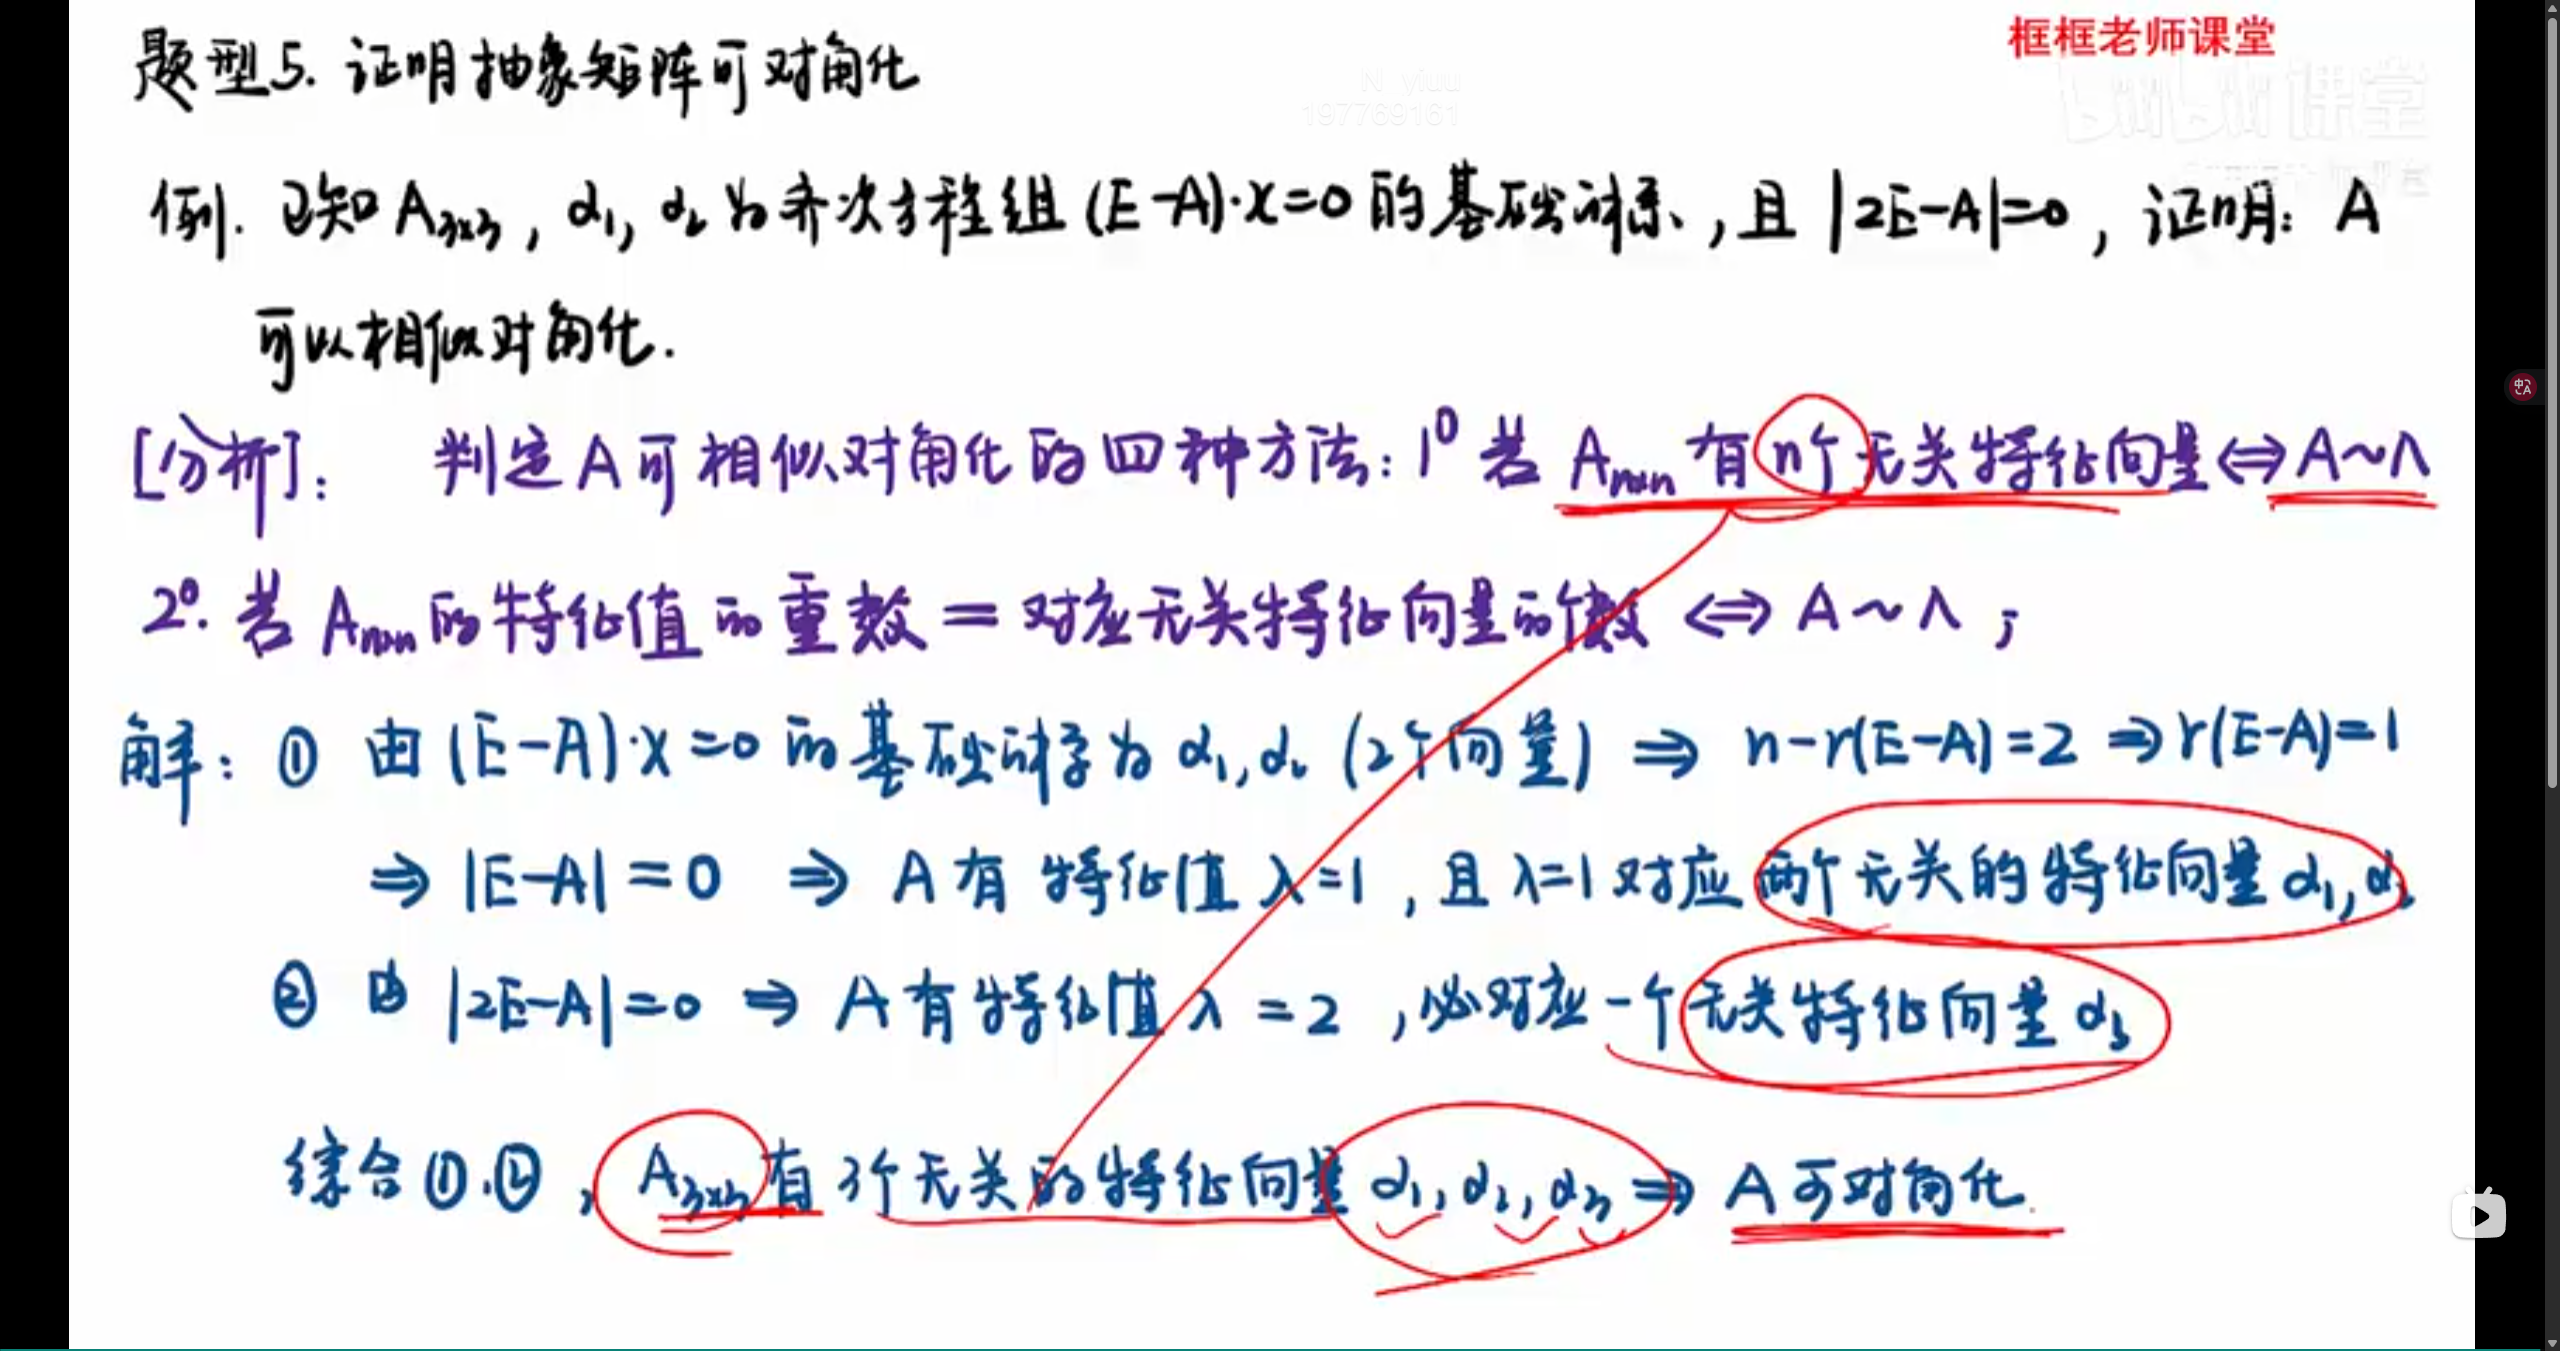 框框老师课堂
题型5. 证明抽象矩阵可对角化
N yiuu
197769161
课堂
例. 已知A₃ₓ₃, α₁, α₂为齐次方程组(E-A)·x=0的基础解系, 且|2E-A|=0, 证明: A
可以相似对角化.
[分析]: 判定A可相似对角化的四种方法: 1⁰ 若Aₙₓₙ有n个无关特征向量⇔A~Λ
2⁰. 若Aₙₓₙ的特征值的重数=对应无关特征向量的个数⇔A~Λ;
解: ① 由(E-A)·x=0的基础解系为α₁,α₂(2个向量)⇒n-r(E-A)=2⇒r(E-A)=1
⇒|E-A|=0⇒A有特征值λ=1, 且λ=1对应两个无关的特征向量α₁,α₂
② 由|2E-A|=0⇒A有特征值λ=2, 必对应一个无关特征向量α₃
综合①.②, A₃ₓ₃有3个无关的特征向量α₁,α₂,α₃⇒A可对角化.